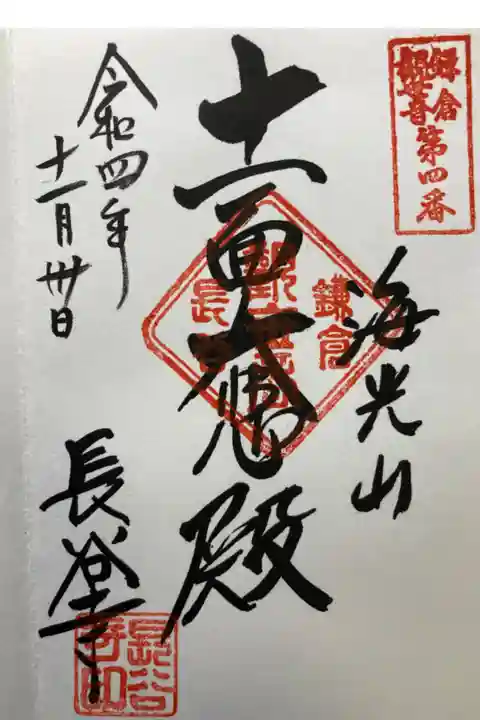 鎌倉
觀世音
第四番
海光山
鎌倉
十一面大悲殿
令和四年
十一月卅日
長谷寺
長谷
寺印